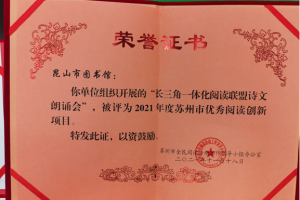 荣誉证书
昆山市图书馆：
你单位组织开展的“长三角一体化阅读联盟诗文
朗诵会”，被评为2021年度苏州市优秀阅读创新
项目。
特发此证，以资鼓励。
苏州市全民阅读
领导小组办公室
二〇二一年十一月十八日